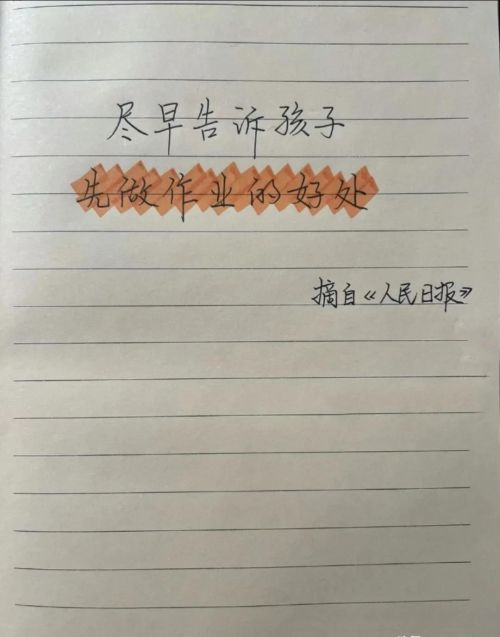 尽早告诉孩子
先做作业的好处
摘自《人民日报》